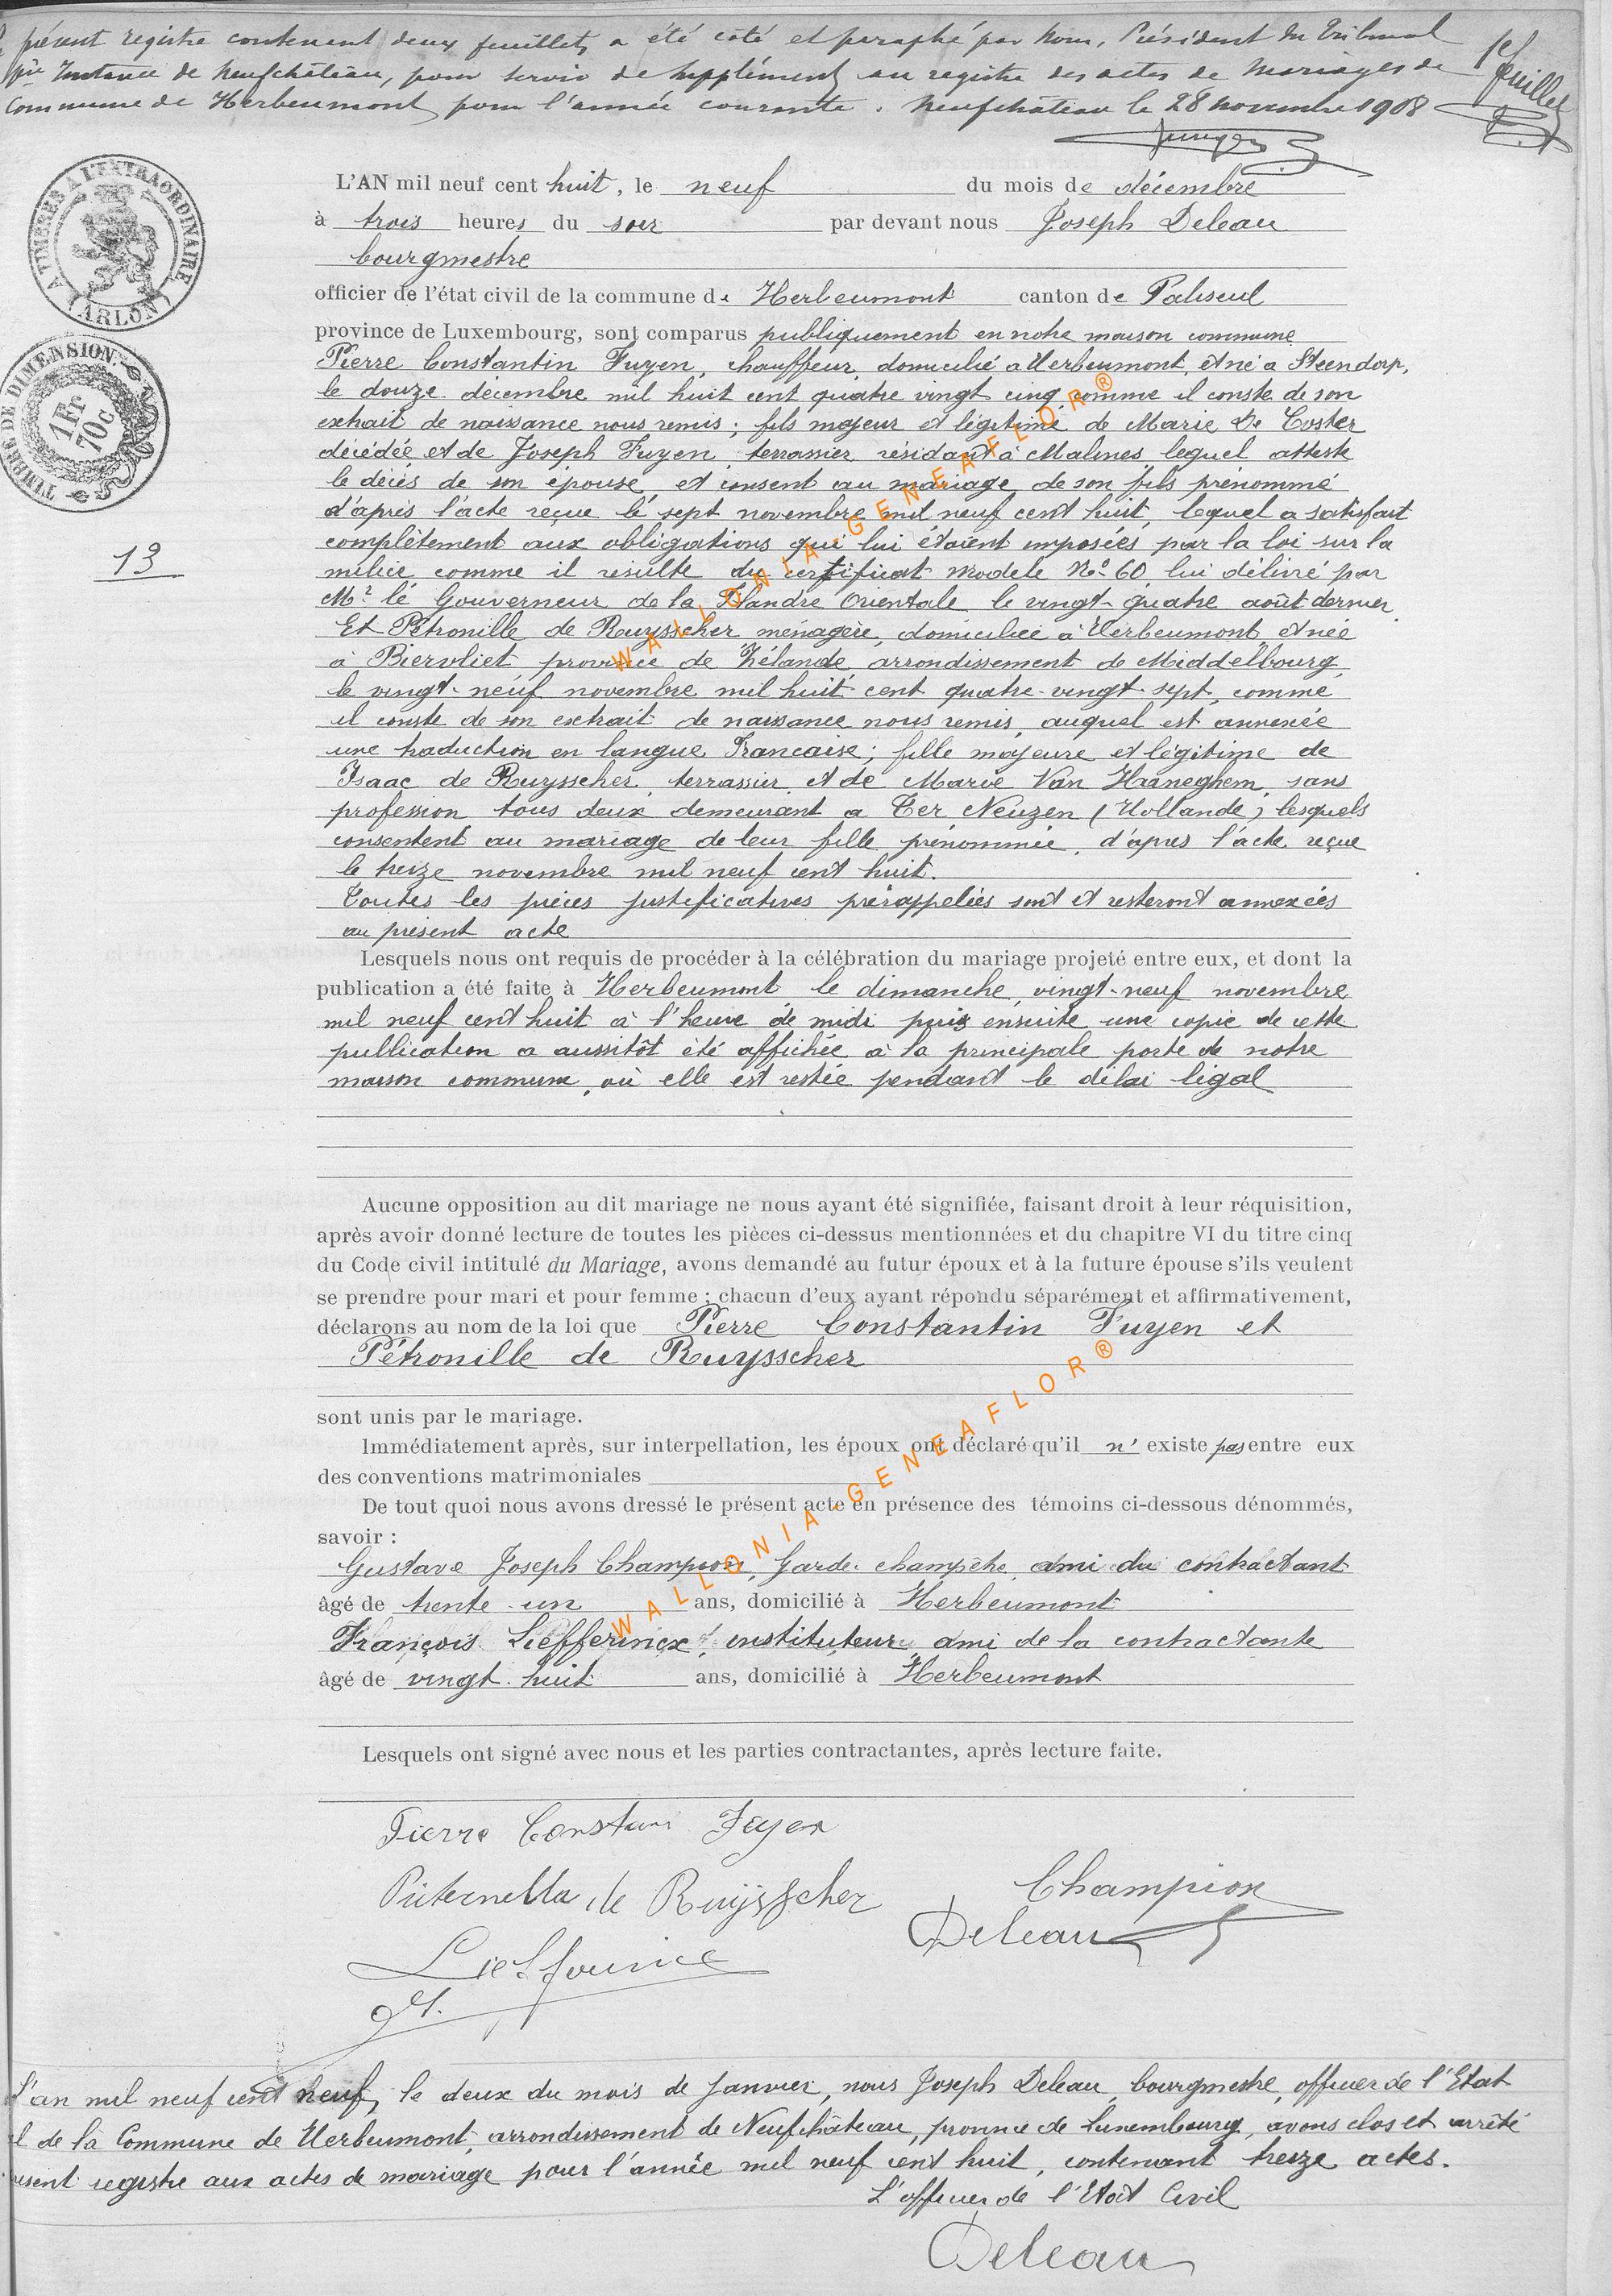 présent registre contenant deux feuillets a été coté et paraphé par Nous, Président du Tribunal
1ère Instance de Neufchâteau, pour servir de supplément au registre des actes de Mariages de
Commune de Herbeumont pour l'année courante. Neufchâteau le 28 novembre 1908
1er feuillet
A TIMBRES A L'EXTRAORDINAIRE
(ARLON)
TIMBRE DE DIMENSION
1Fr
70c
13
L'AN mil neuf cent huit, le neuf du mois de décembre
à trois heures du soir par devant nous Joseph Deleau
bourgmestre
officier de l'état civil de la commune de Herbeumont canton de Paliseul
province de Luxembourg, sont comparus publiquement en notre maison commune
Pierre Constantin Fuyen, chauffeur, domicilié a Herbeumont, et né a Steendorp,
le douze décembre mil huit cent quatre vingt cinq comme il conste de son
extrait de naissance nous remis; fils majeur et légitime de Marie De Coster
décédée et de Joseph Fuyen, terrassier, résidant à Malines, lequel atteste
le décès de son épouse, et consent au mariage de son fils prénommé
d'après l'acte reçue le sept novembre mil neuf cent huit, lequel a satisfait
complètement aux obligations qui lui étaient imposées par la loi sur la
milice comme il résulte du certificat modèle No 60 lui délivré par
Mr le Gouverneur de la Flandre Orientale le vingt-quatre août dernier
Et Pétronille de Ruysscher ménagère, domiciliée à Herbeumont, et née
à Biervliet province de Zélande, arrondissement de Middelbourg,
le vingt-neuf novembre mil huit cent quatre-vingt-sept, comme
il conste de son extrait de naissance nous remis, auquel est annexée
une traduction en langue Francaise; fille majeure et légitime de
Isaac de Ruysscher, terrassier, et de Marie Van Haaneghem, sans
profession tous deux demeurant a Ter Neuzen (Hollande) lesquels
consentent au mariage de leur fille prénommée, d'après l'acte reçue
le treize novembre mil neuf cent huit.
Toutes les pièces justificatives prérappelées sont et resteront annexées
au présent acte
Lesquels nous ont requis de procéder à la célébration du mariage projeté entre eux, et dont la
publication a été faite à Herbeumont le dimanche, vingt-neuf novembre
mil neuf cent huit à l'heure de midi puis ensuite une copie de cette
publication a aussitôt été affichée à la principale porte de notre
maison commune, où elle est restée pendant le délai légal
Aucune opposition au dit mariage ne nous ayant été signifiée, faisant droit à leur réquisition,
après avoir donné lecture de toutes les pièces ci-dessus mentionnées et du chapitre VI du titre cinq
du Code civil intitulé du Mariage, avons demandé au futur époux et à la future épouse s'ils veulent
se prendre pour mari et pour femme ; chacun d'eux ayant répondu séparément et affirmativement,
déclarons au nom de la loi que Pierre Constantin Fuyen et
Pétronille de Ruysscher
sont unis par le mariage.
Immédiatement après, sur interpellation, les époux ont déclaré qu'il n' existe pas entre eux
des conventions matrimoniales
De tout quoi nous avons dressé le présent acte en présence des témoins ci-dessous dénommés,
savoir :
Gustave Joseph Champion, Garde-champêtre, ami du contractant
âgé de trente-un ans, domicilié à Herbeumont
François Liefferinckx, instituteur, ami de la contractante
âgé de vingt-huit ans, domicilié à Herbeumont
Lesquels ont signé avec nous et les parties contractantes, après lecture faite.
Pierre Constan Feyen
Piternella de Ruijsscher
Champion
Deleau
L'an mil neuf cent neuf, le deux du mois de Janvier, nous Joseph Deleau, bourgmestre, officier de l'Etat
l de la Commune de Herbeumont, arrondissement de Neufchâteau, province de Luxembourg, avons clos et arrêté
résent registre aux actes de mariage pour l'année mil neuf cent huit, contenant treize actes.
L'officier de l'Etat Civil
Deleau
WALLONIA-GENEAFLOR®
WALLONIA-GENEAFLOR®